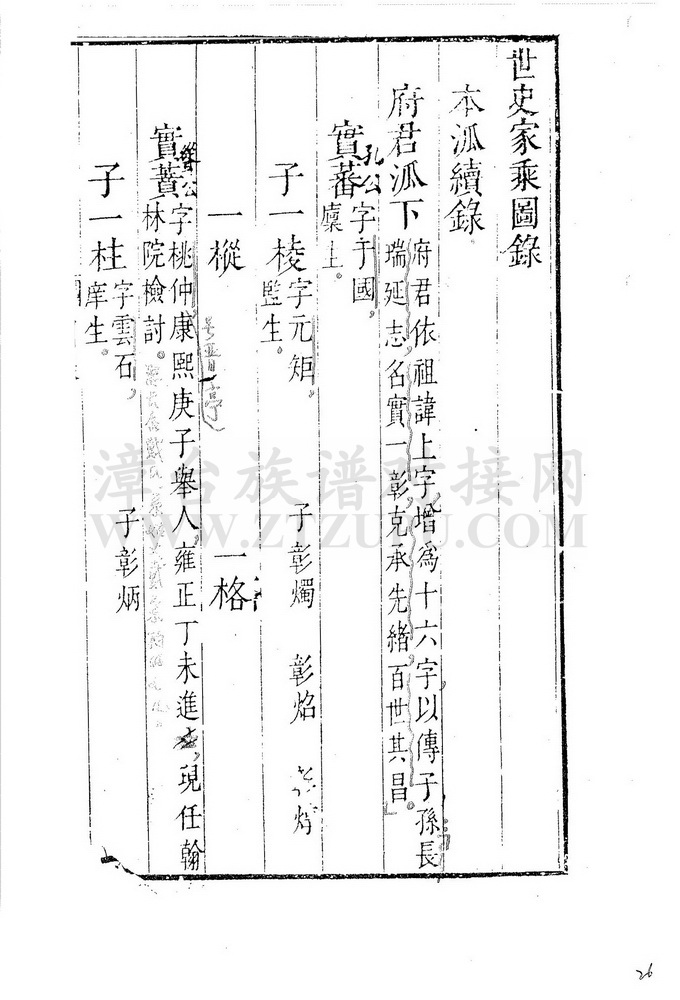 世史家乘圖錄
本派續錄
府君派下
府君依祖諱上字,增爲十六字,以傳子孫長
瑞延志名實一彰,克承先緒,百世其昌。
實蕃
孔公
字于國,
廩生。
子一棱
字元矩,
監生。
子彰燭 彰焰
一樅 一格
實蕡
公
字桃仲,康熙庚子舉人,雍正丁未進士,現任翰
林院檢討。
子一柱
字雲石,
庠生。
子彰炳
漳台族谱对接网
WWW.ZTZUPU.COM
26